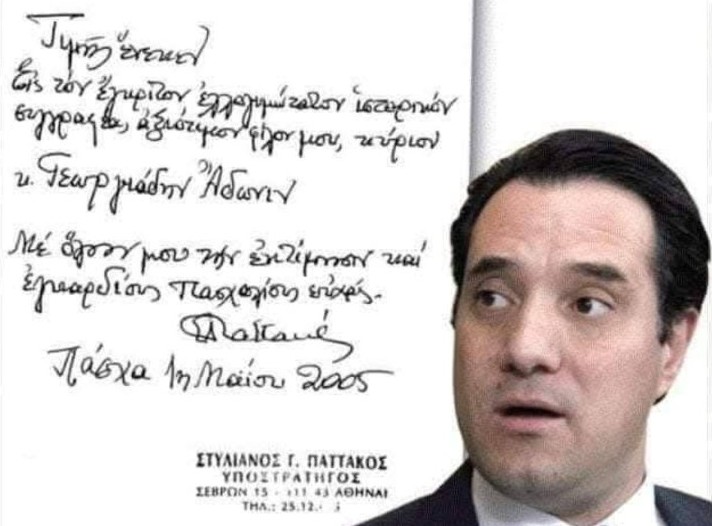 Τιμῆς ἕνεκεν
Εἰς τόν ἔγκριτον, ἐλλογιμώτατον ἱστορικόν
συγγραφέα, ἀξιότιμον φίλον μου, κύριον
κ. Γεωργιάδην Ἄδωνιν
Μέ ὅλην μου τήν ἐκτίμησιν καί
ἐγκαρδίους πασχαλίους εὐχάς.
Παττακός
Πάσχα 1η Μαΐου 2005
ΣΤΥΛΙΑΝΟΣ Γ. ΠΑΤΤΑΚΟΣ
ΥΠΟΣΤΡΑΤΗΓΟΣ
ΣΕΒΡΩΝ 15 - 111 43 ΑΘΗΝΑΙ
ΤΗΛ.: 25.12.